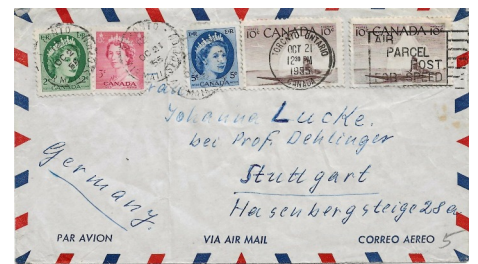 2¢ CANADA
3¢ CANADA
5¢ CANADA
10¢ CANADA
10¢ CANADA
TORONTO ONTARIO
OCT 21
1955
CANADA
AIR
PARCEL
POST
FOR SPEED
Johanna Lucke.
bei Prof. Dehlinger
Stuttgart
Hasenbergsteige 28a
Germany.
PAR AVION
VIA AIR MAIL
CORREO AEREO
5